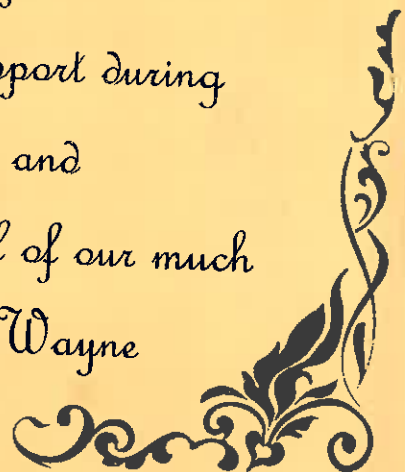 during
and
of our much
Wayne